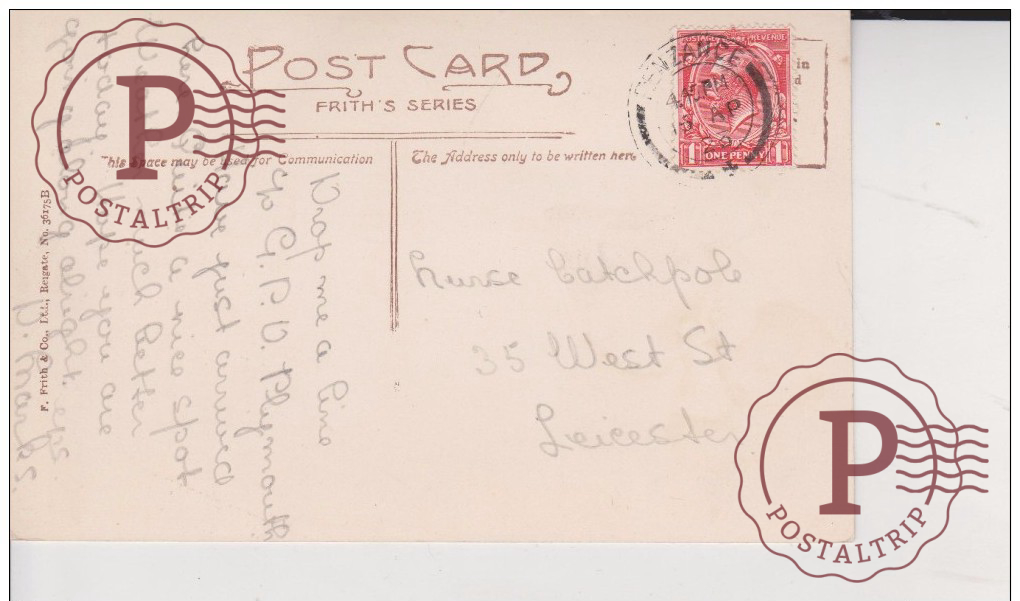 POST CARD
FRITH'S SERIES
This Space may be used for Communication
The Address only to be written here
PENZANCE
4.15 PM
AP
POSTAGE REVENUE
ONE PENNY
1 1
Nurse Catchpole
35 West St
Leicester
Drop me a line
G.P.O. Plymouth
just arrived
a nice spot
much better
today Hope you are
going along alright.
F. Frith & Co., Ltd., Reigate, No. 36175B
P
POSTALTRIP
P
POSTALTRIP